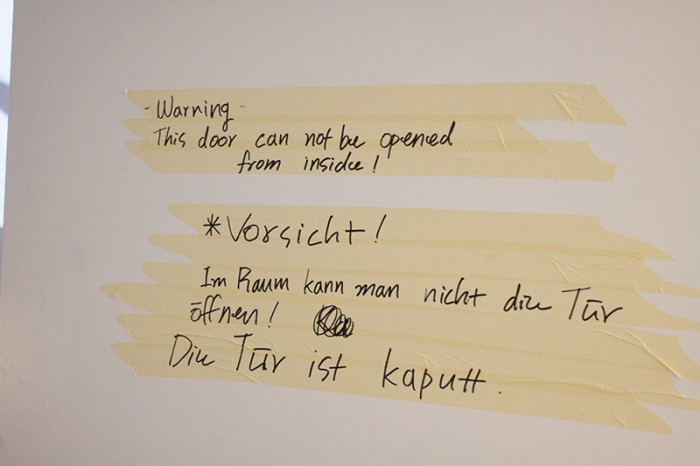 - Warning -
This door can not be opened
from inside!
*Vorsicht!
Im Raum kann man nicht die Tür
öffnen!
Die Tür ist kaputt.